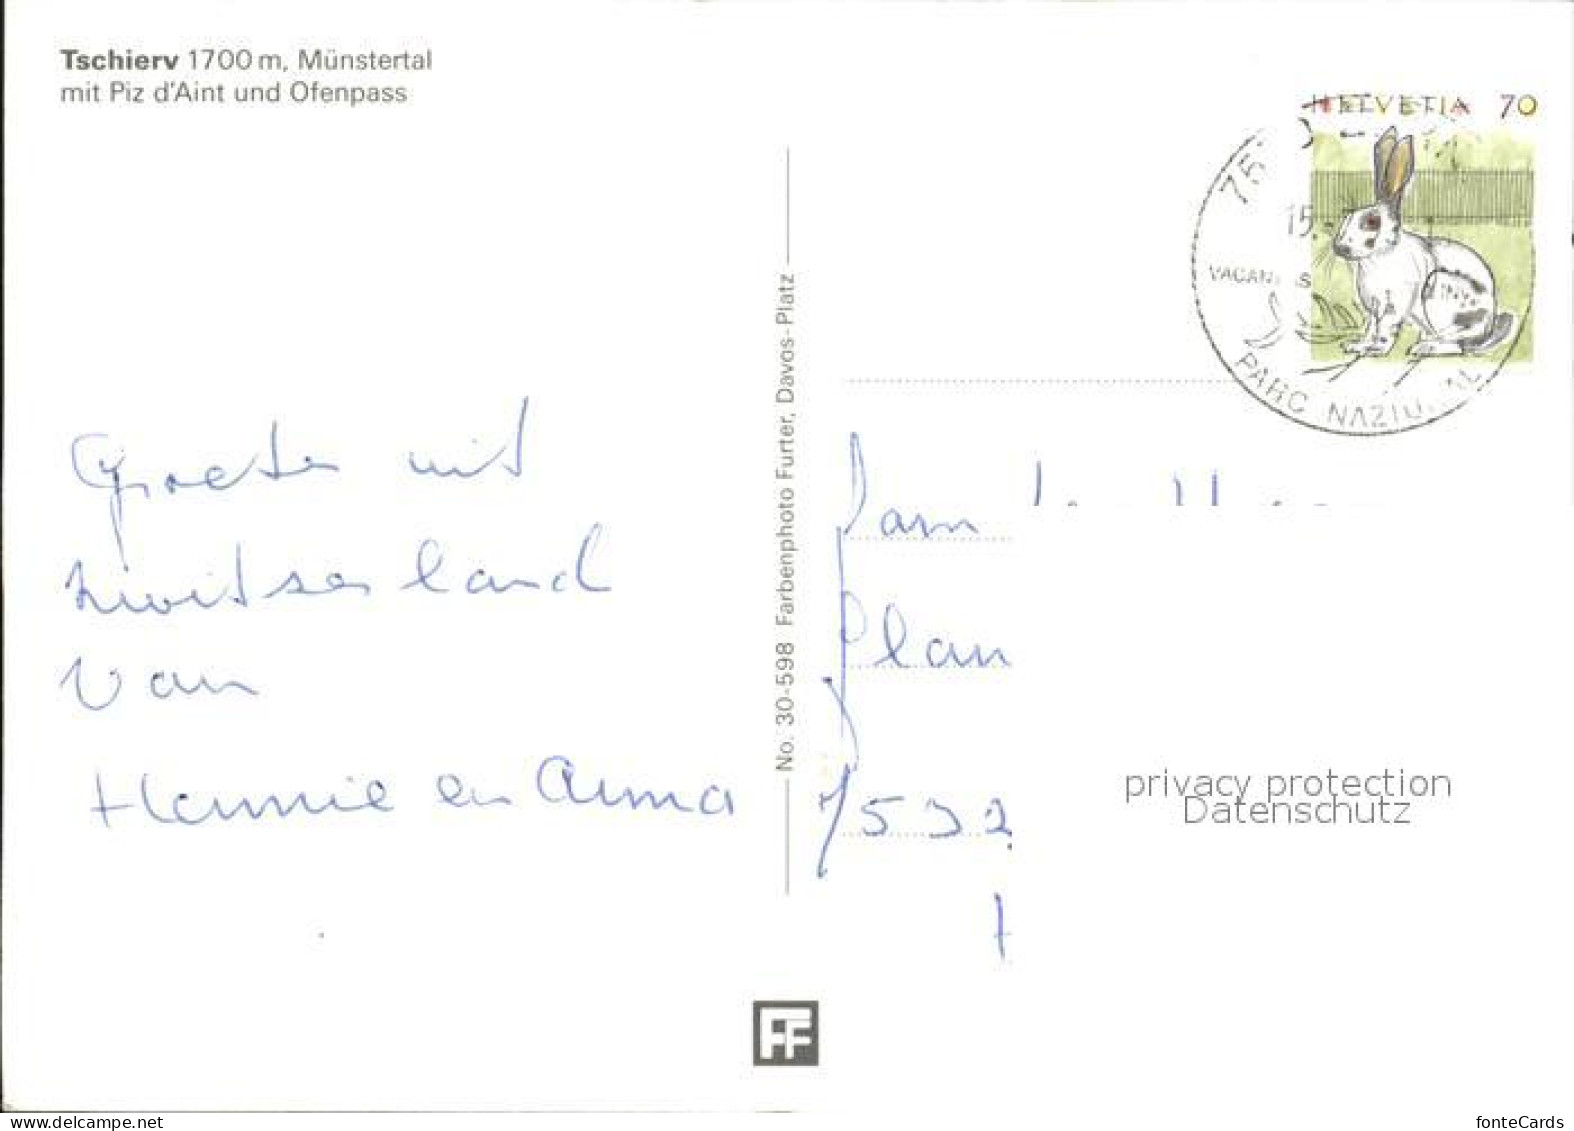 Tschierv 1700 m, Münstertal
mit Piz d'Aint und Ofenpass
HELVETIA 70
75
15.
VACAN
PARC NAZIU AL
Groeten uit
Zwitserland
van
Hannie en Anna
No. 30-598 Farbenphoto Furter, Davos-Platz
Fam
Plan
7532
privacy protection
Datenschutz
FF
www.delcampe.net
fonteCards